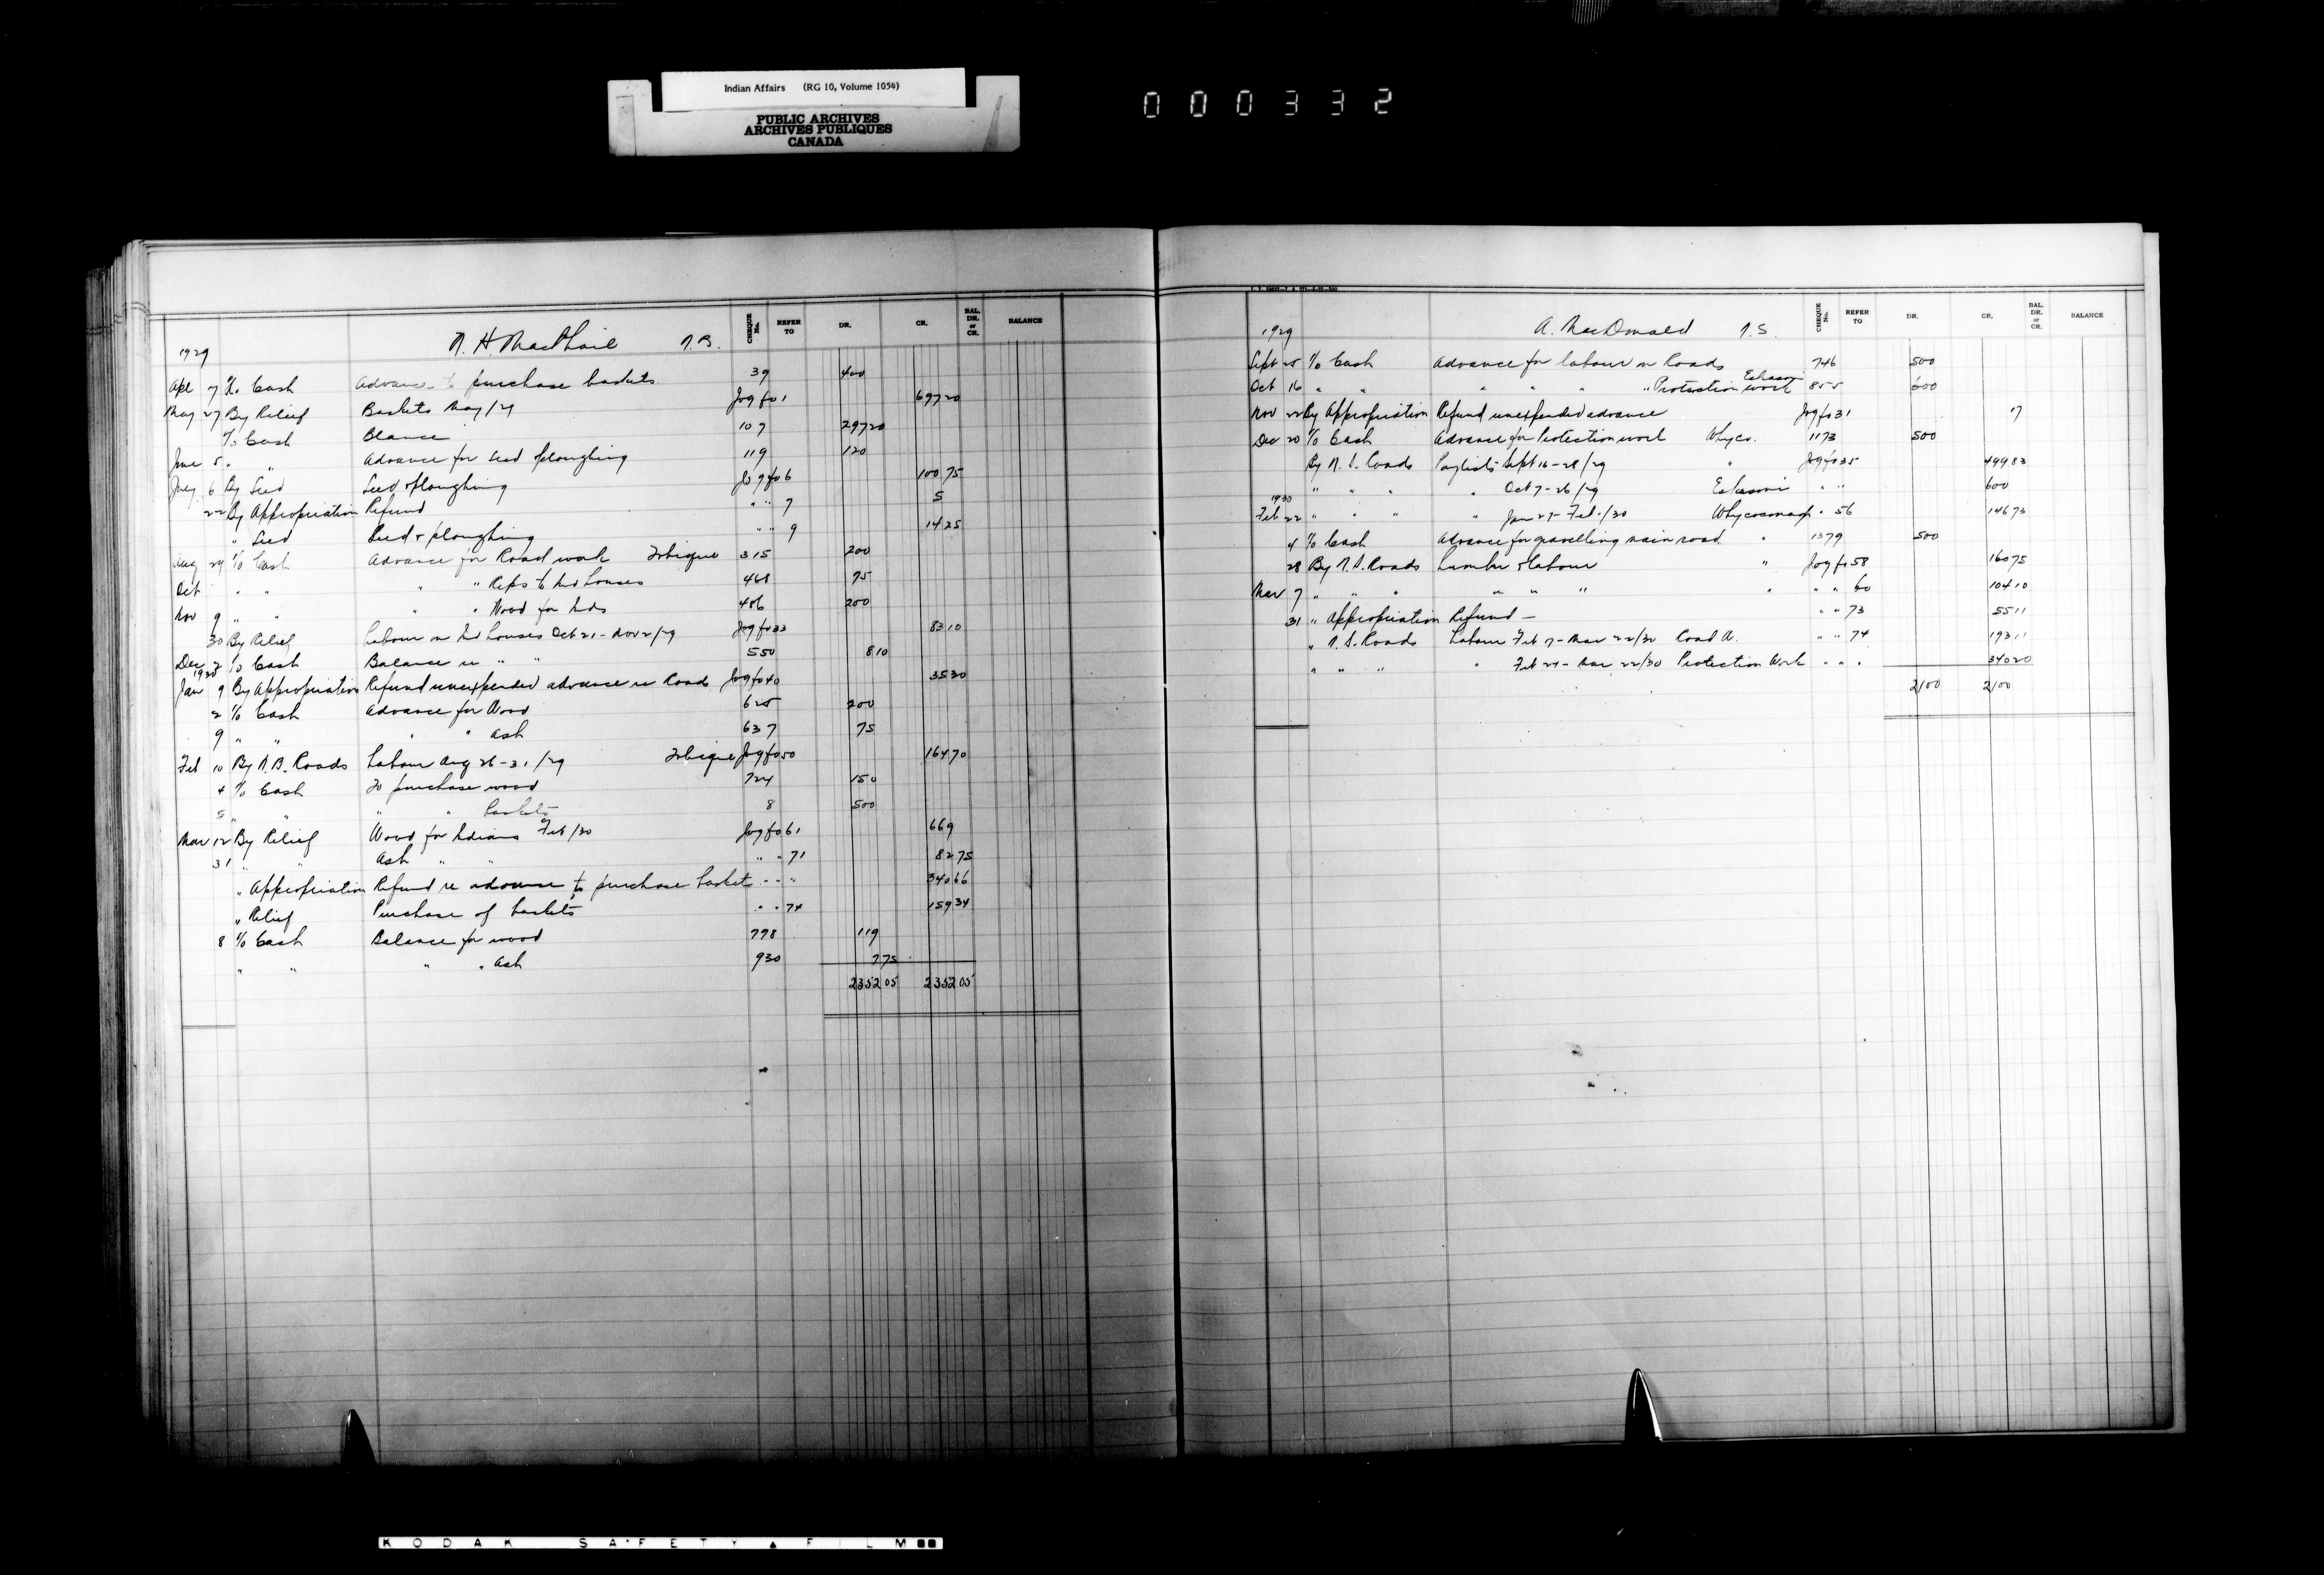 Indian Affairs (RG 10, Volume 1054)
PUBLIC ARCHIVES
ARCHIVES PUBLIQUES
CANADA
000332
CHEQUE No. REFER TO DR. CR. BAL. DR. or CR. BALANCE
1929 N. H. MacPhail N.B.
Apl 7 To Cash Advance to purchase baskets 39 400
May 27 By Relief Baskets May/29 Jog fo 1 697 20
To Cash Blance 107 297 20
June 5 " " Advance for seed & ploughing 119 120
July 6 By Seed Seed & ploughing Jog fo 6 100 75
22 By Appropriation Refund " " 7 5
" Seed Seed & ploughing " " 9 14 25
Aug 29 To Cash Advance for Road work Tobique 315 200
Oct " " " " Reps to Ind houses 468 75
Nov 9 " " " " Wood for Inds 486 200
30 By Relief Labour on Ind houses Oct 21 - Nov 2/29 Jog fo 33 83 10
Dec 2 To Cash Balance re " " 550 8 10
1930
Jan 9 By Appropriation Refund unexpended advance re Roads Jog fo 40 35 30
2 To Cash Advance for Wood 625 200
9 " " " " Ash 637 75
Feb 10 By N.B. Roads Labour Aug 26 - 31/29 Tobique Jog fo 50 164 70
4 To Cash To purchase wood 724 150
5 " " " " baskets 8 500
Mar 12 By Relief Wood for Indians Feb/30 Jog fo 61 669
31 " " Ash " " " " 71 82 75
" Appropriation Refund re advance to purchase baskets " " " 340 66
" Relief Purchase of baskets " " 74 159 34
8 To Cash Balance for wood 778 119
" " " " Ash 930 7 75
2352 05 2352 05
CHEQUE No. REFER TO DR. CR. BAL. DR. or CR. BALANCE
1929 A. MacDonald N.S.
Sept 25 To Cash Advance for labour on Roads 746 500
Oct 16 " " " " " " Protection work Eskasoni 855 600
Nov 22 By Appropriation Refund unexpended advance Jog fo 31 17
Dec 20 To Cash Advance for Protection work Whyco. 1173 500
By N.S. Roads Paylists Sept 16 - 28/29 " Jog fo 35 499 83
" " " " Oct 7 - 26/29 Eskasoni " " 600
1930
Feb 22 " " " " Jan 27 - Feb 1/30 Whycocomagh " 56 146 73
4 To Cash Advance for gravelling main road " 1379 500
28 By N.S. Roads Lumber & Labour " Jog fo 58 160 75
Mar 7 " " " " " " " " " 60 104 10
31 " Appropriation Refund — " " 73 55 11
" N.S. Roads Labour Feb 17 - Mar 22/30 Road A. " " 74 193 11
" " " " Feb 24 - Mar 22/30 Protection Work " " " 340 20
2100 2100
KODAK SAFETY FILM